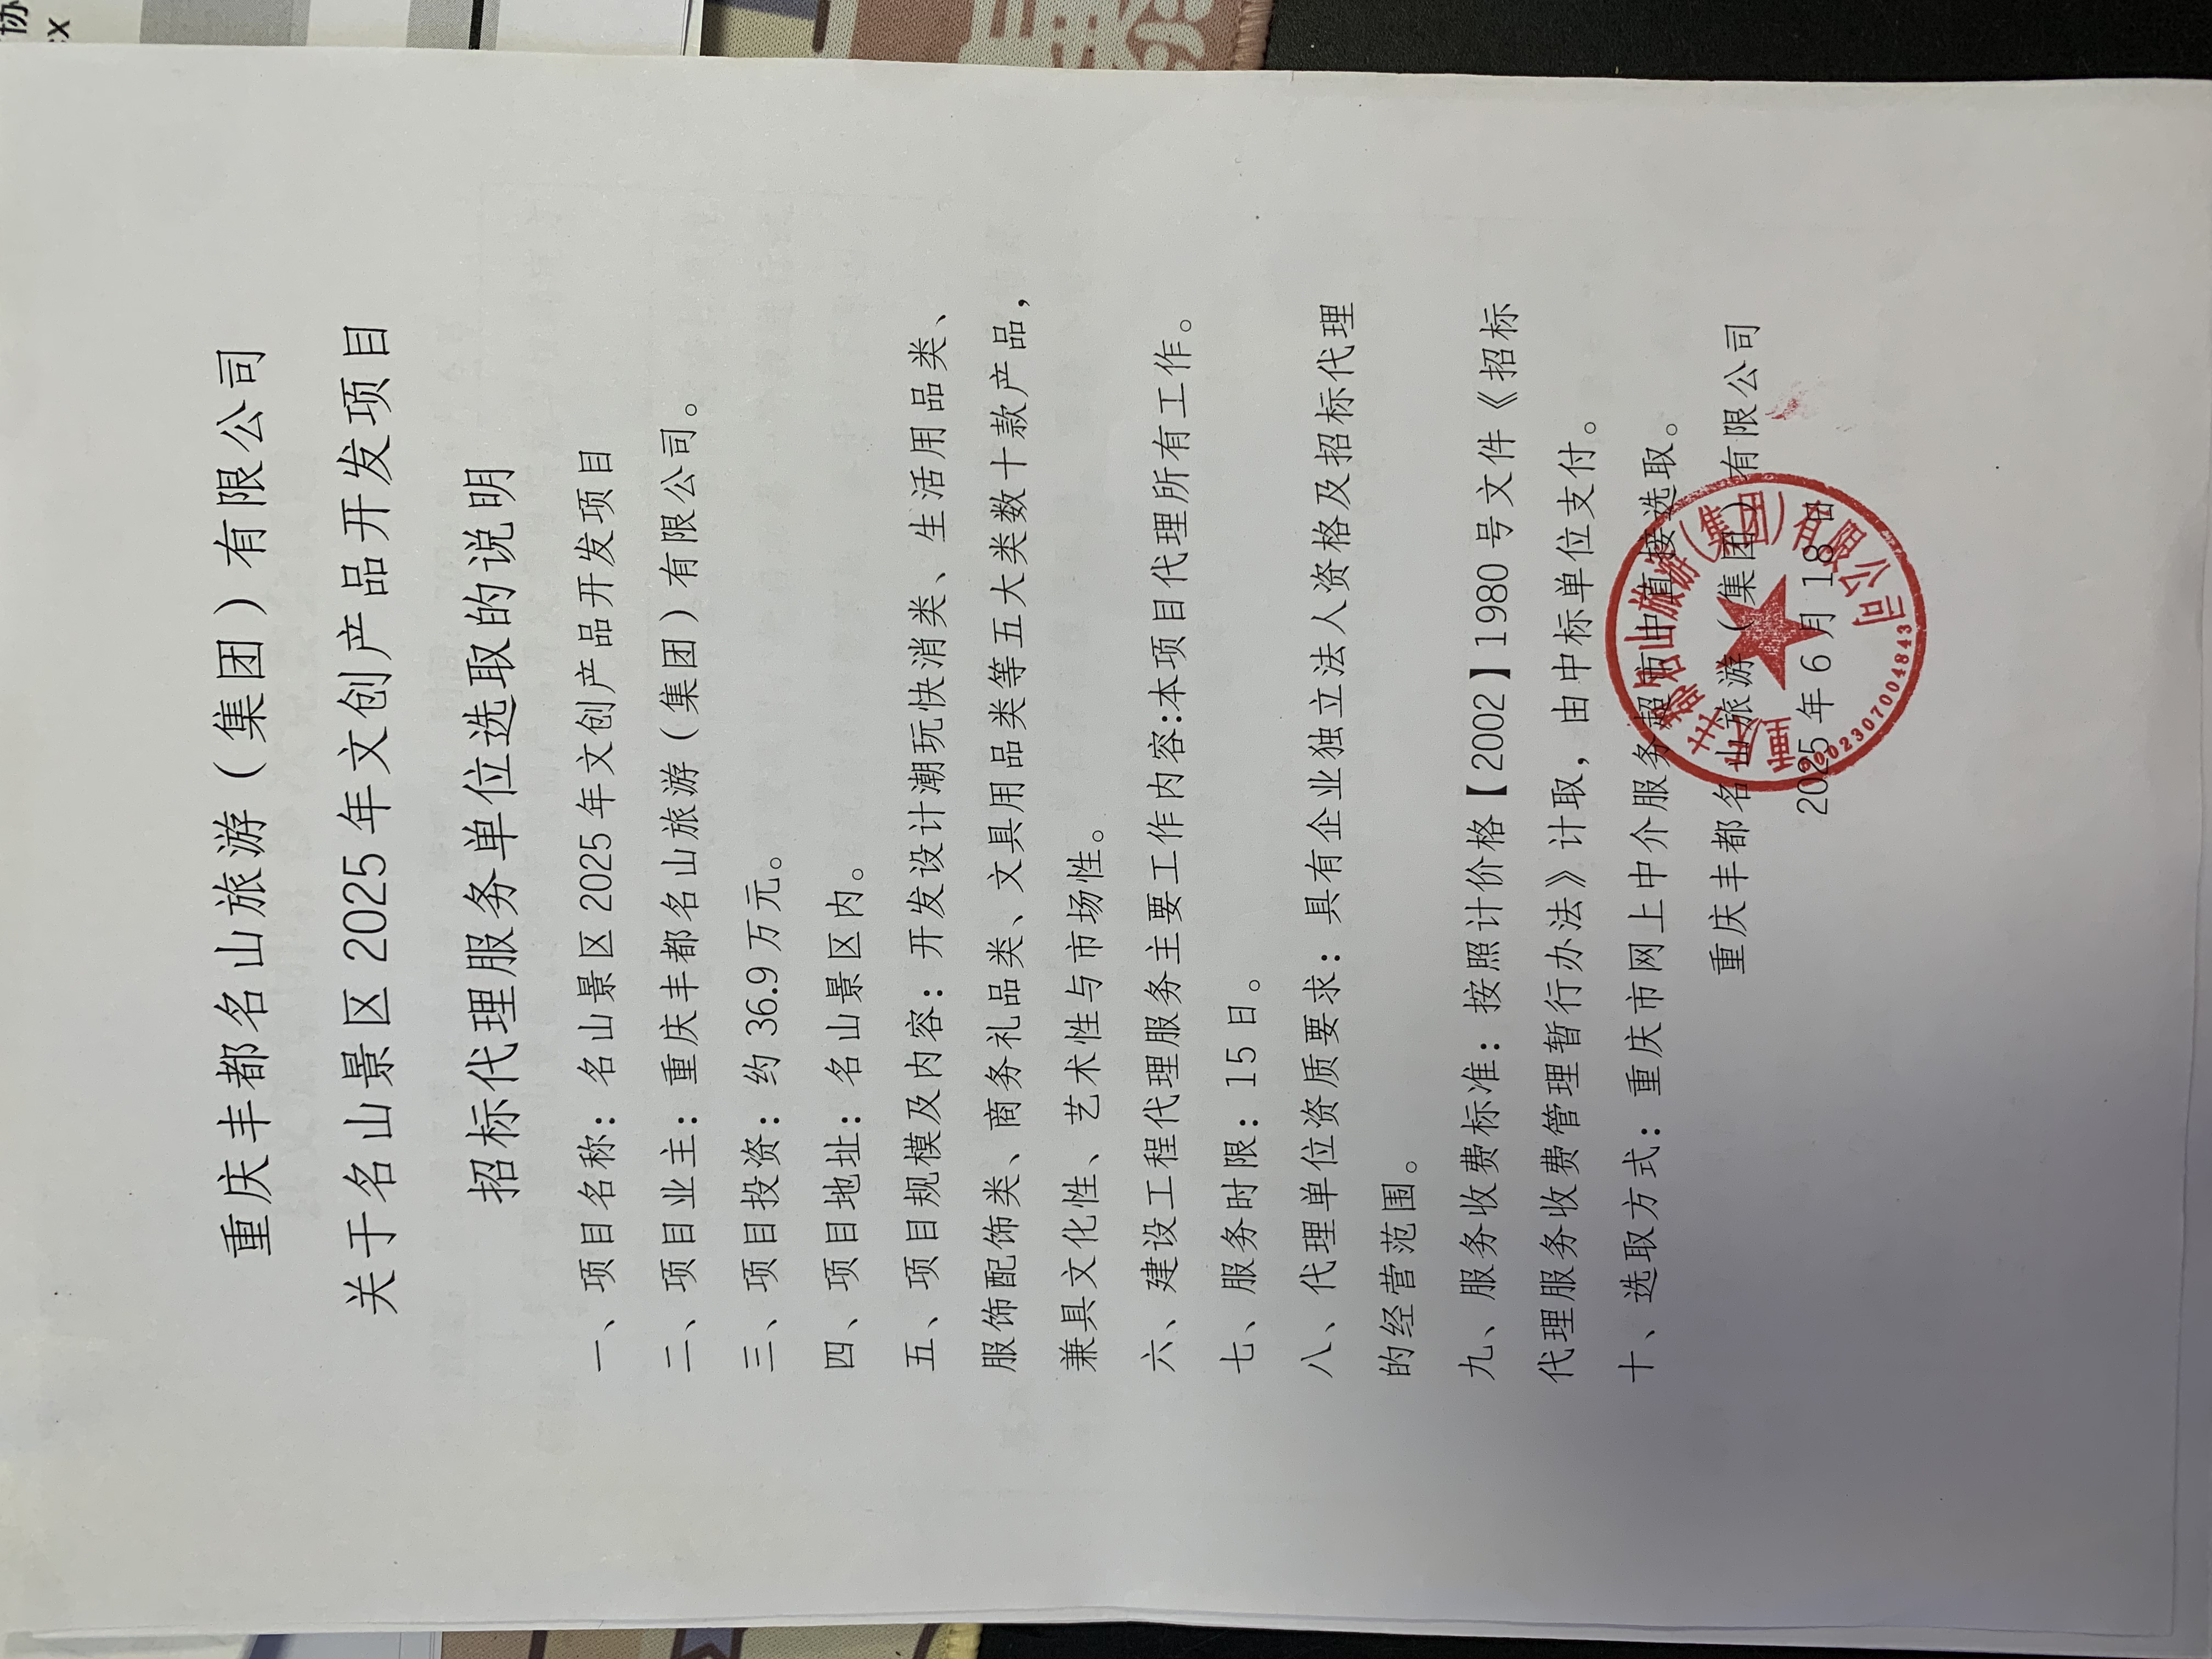 重庆丰都名山旅游（集团）有限公司
关于名山景区 2025 年文创产品开发项目
招标代理服务单位选取的说明
一、项目名称：名山景区 2025 年文创产品开发项目
二、项目业主：重庆丰都名山旅游（集团）有限公司。
三、项目投资：约 36.9 万元。
四、项目地址：名山景区内。
五、项目规模及内容：开发设计潮玩快消类、生活用品类、
服饰配饰类、商务礼品类、文具用品类等五大类数十款产品，
兼具文化性、艺术性与市场性。
六、建设工程代理服务主要工作内容:本项目代理所有工作。
七、服务时限：15 日。
八、代理单位资质要求：具有企业独立法人资格及招标代理
的经营范围。
九、服务收费标准：按照计价格【2002】1980 号文件《招标
代理服务收费管理暂行办法》计取，由中标单位支付。
十、选取方式：重庆市网上中介服务超市直接选取。
重庆丰都名山旅游（集团）有限公司
2025 年 6 月 18 日
名山旅游(集团)有限公司
协
x